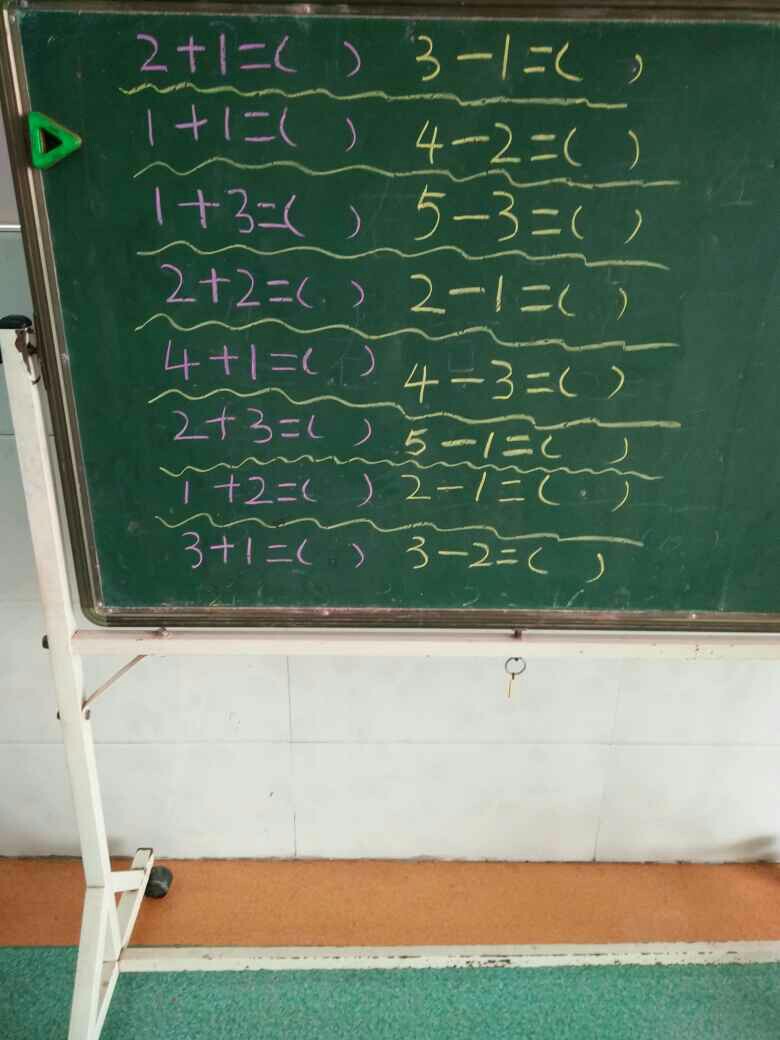 2+1=( ) 3-1=( )
1+1=( ) 4-2=( )
1+3=( ) 5-3=( )
2+2=( ) 2-1=( )
4+1=( ) 4-3=( )
2+3=( ) 5-1=( )
1+2=( ) 2-1=( )
3+1=( ) 3-2=( )